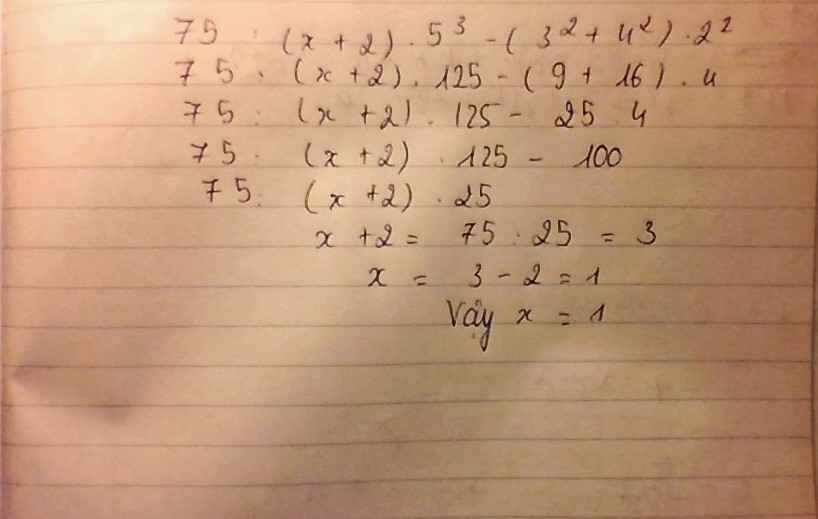 75 : (x + 2) . 5³ - ( 3² + 4² ) . 2²
75 : (x + 2) . 125 - ( 9 + 16 ) . 4
75 : (x + 2) . 125 - 25 . 4
75 : (x + 2) . 125 - 100
75 : (x + 2) . 25
x + 2 = 75 : 25 = 3
x = 3 - 2 = 1
Vậy x = 1